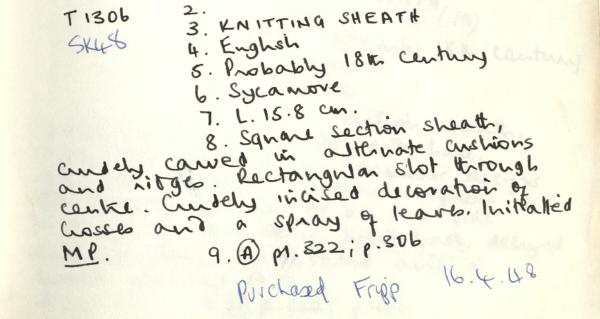 T1306
SK48
2.
3. KNITTING SHEATH
4. English
5. Probably 18th century
6. Sycamore
7. L. 15.8 cm.
8. Square section sheath,
crudely carved in alternate cushions
and ridges. Rectangular slot through
centre. Crudely incised decoration of
crosses and a spray of leaves. Initialled
MP.
9. (A) pl. 322; p. 306
Purchased Fripp 16.4.48